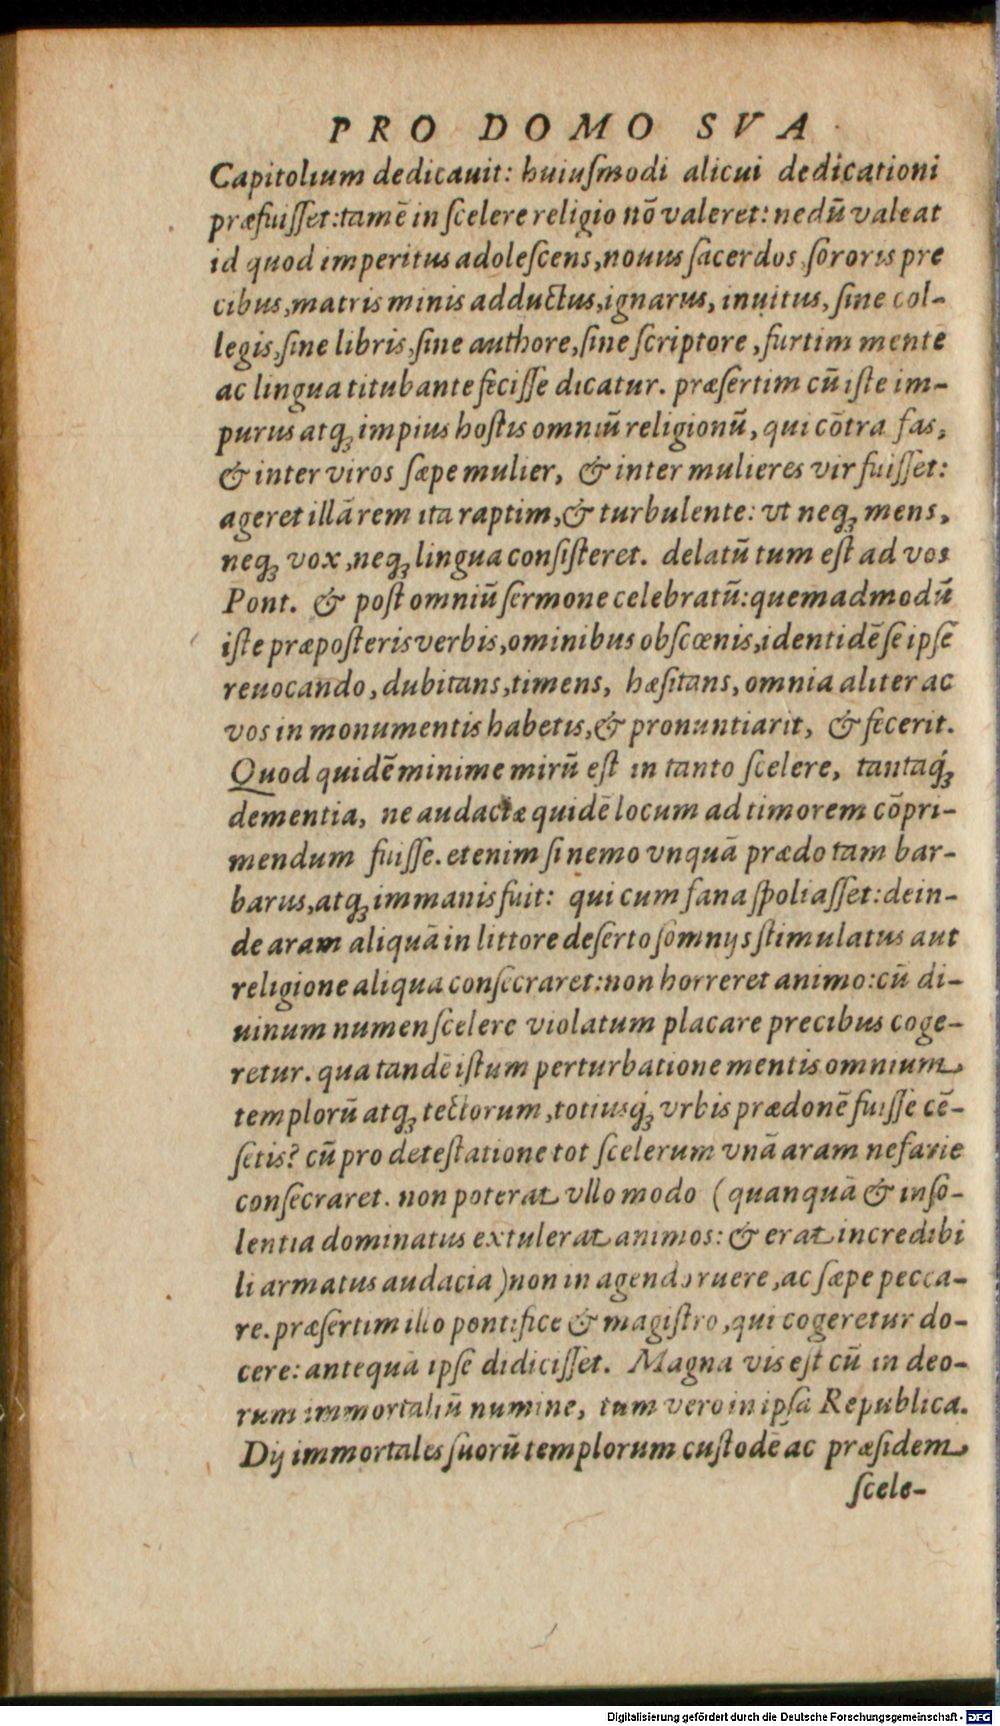 PRO DOMO SVA
Capitolium dedicauit: huiuſmodi alicui dedicationi
præfuiſſet:tamē in ſcelere religio nō valeret: nedū valeat
id quod imperitus adoleſcens,nouus ſacerdos,ſororis pre
cibus,matris minis adductus,ignarus, inuitus, ſine col-
legis,ſine libris,ſine authore,ſine ſcriptore ,furtim mente
ac lingua titubante feciſſe dicatur. præſertim cū iſte im-
purus atq; impius hoſtis omniū religionū, qui cōtra fas,
& inter viros ſæpe mulier, & inter mulieres vir fuiſſet:
ageret illā rem ita raptim,& turbulente: vt neq; mens,
neq; vox ,neq; lingua conſiſteret. delatū tum eſt ad vos
Pont. & poſt omniū ſermone celebratū:quemadmodū
iſte præpoſteris verbis,ominibus obſcœnis,identidē ſe ipſē
reuocando, dubitans,timens, hæſitans, omnia aliter ac
vos in monumentis habetis,& pronuntiarit, & fecerit.
Quod quidē minime mirū eſt in tanto ſcelere, tantaq́;
dementia, ne audaciæ quidē locum ad timorem cōpri-
mendum fuiſſe. etenim ſi nemo vnquā prædo tam bar-
barus,atq; immanis fuit: qui cum fana ſpoliaſſet:dein-
de aram aliquā in littore deſerto ſomnijs ſtimulatus aut
religione aliqua conſecraret:non horreret animo:cū di-
uinum numen ſcelere violatum placare precibus coge-
retur. qua tandē iſtum perturbatione mentis omnium
templorū atq; tectorum ,totiusq́; vrbis prædonē fuiſſe cē-
ſetis? cū pro deteſtatione tot ſcelerum vnā aram nefarie
conſecraret. non poterat vllo modo (quanquā & inſo-
lentia dominatus extulerat animos: & erat incredibi
li armatus audacia )non in agendo ruere ,ac ſæpe pecca-
re.præſertim illo pontifice & magiſtro ,qui cogeretur do-
cere: antequā ipſe didiciſſet. Magna vis eſt cū in deo-
rum immortaliū numine, tum vero in ipſa Republica.
Dij immortales ſuorū templorum cuſtodē ac præſidem
ſcele-
Digitalisierung gefördert durch die Deutsche Forschungsgemeinschaft - DFG